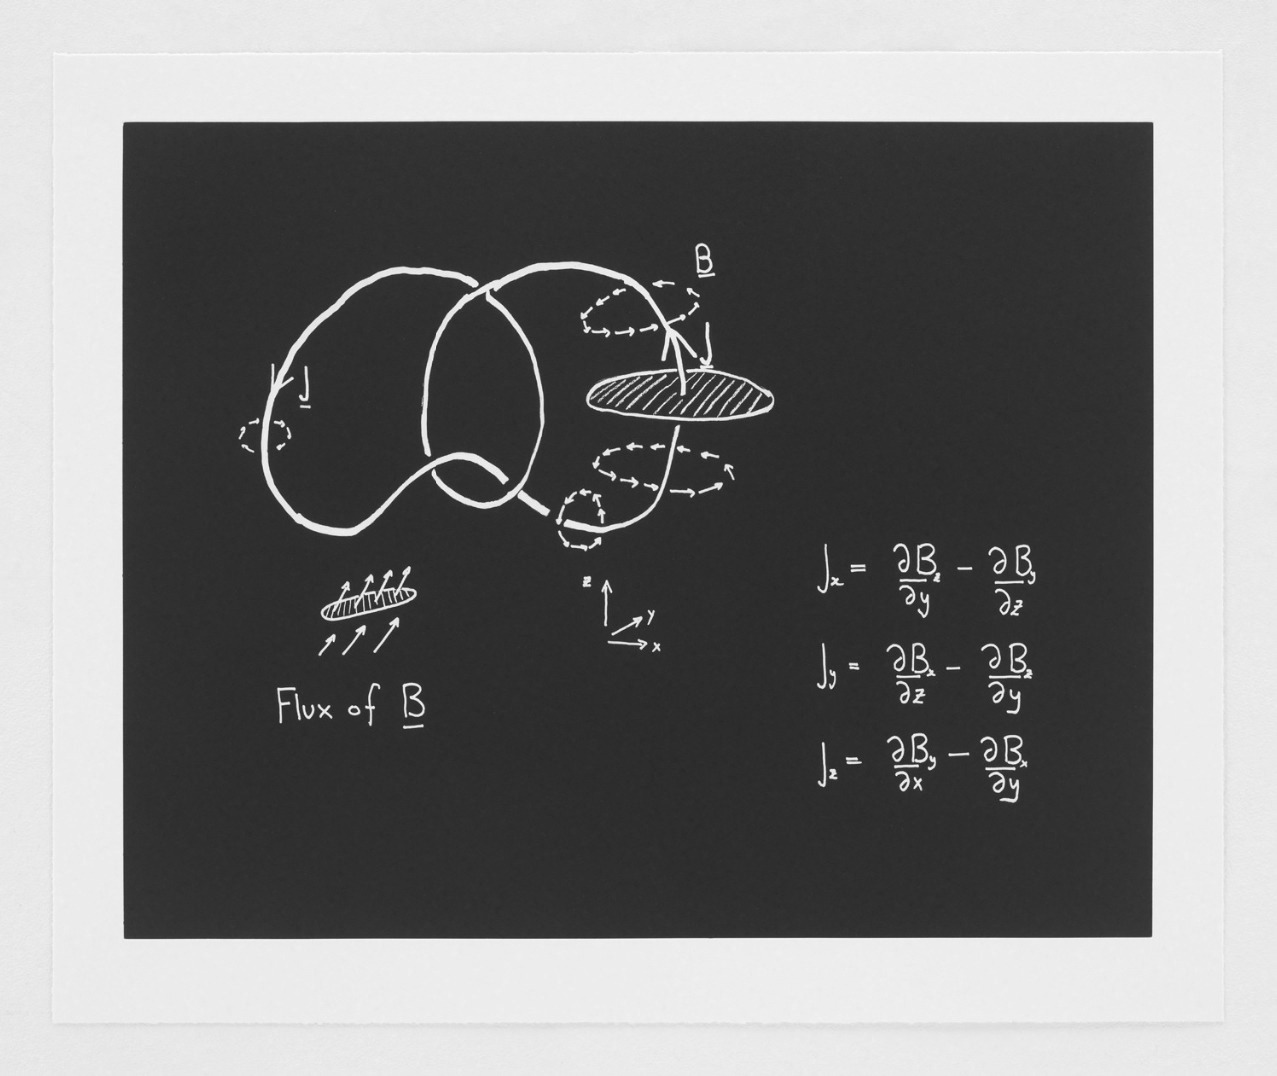 B
J
J
z
y
x
Flux of B
Jx = ∂Bz/∂y − ∂By/∂z
Jy = ∂Bx/∂z − ∂Bz/∂y
Jz = ∂By/∂x − ∂Bx/∂y